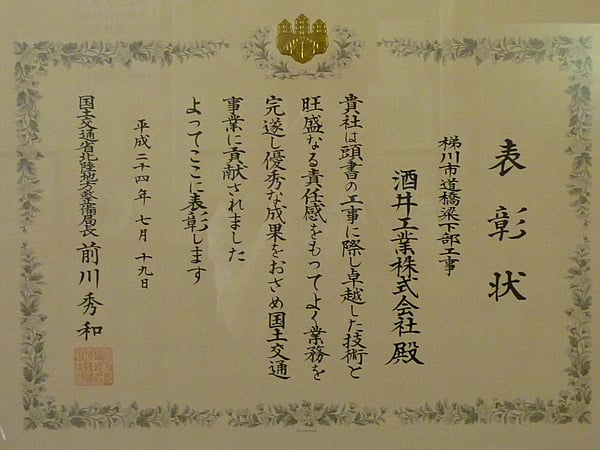 表彰状
梯川市道橋梁下部工事
酒井工業株式会社 殿
貴社は頭書の工事に際し卓越した技術と
旺盛なる責任感をもってよく業務を
完遂し優秀な成果をおさめ国土交通
事業に貢献されました
よってここに表彰します
平成二十四年 七月 十九日
国土交通省北陸地方整備局長 前川秀和